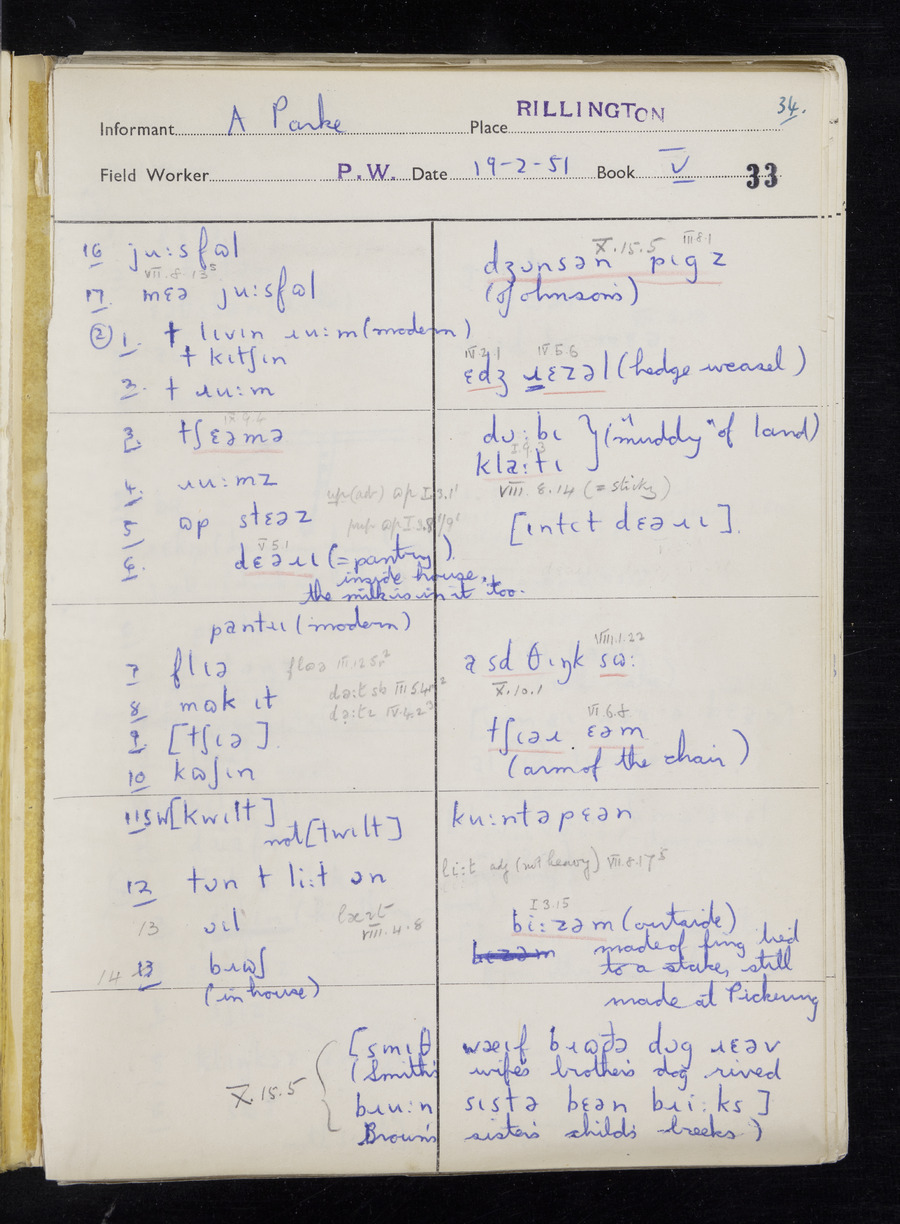 34.
Informant A Parke Place RILLINGTON
Field Worker P.W. Date 19-2-51 Book V 33
16 ju:sfɷl
VII.8.13⁵
17. mɛə ju:sfɷl
② 1. t livin ɹu:m (modern)
t kɪtʃɪn
2. t ɹu:m
IX.9.6
3. tʃɛəmə
4. ɹu:mz
up (adv) ɷp I.3.1'
5 ɷp stɛəz
V.5.1
6. dɛəɹɪ (= pantry).
inside house.
the milk is in it too.
pantɹɪ (modern)
7 flɪə
8 mɷk ɪt
9. [tʃɪə].
10 kɷʃɪn
11 SW [kwɪlt]
not [twɪlt]
12 tɒn t li:t ɒn
13 ɒɪl
VIII.4.8
14 13 bɹɷʃ
(in house)
X.15.5 III.8.1
dʒɒnsən pɪgz
(of Johnson's)
IV.2.1 IV.5.6
ɛdʒ ɹɛzəl (hedge weasel)
dʊ:bɪ } ("muddy" of land)
I.9.3
kla:tɪ
VIII.8.14 (= sticky)
[ɪntɪt dɛəɹɪ].
VIII.1.22
a sd θɪŋk sɷ:
X.10.1
VI.6.8
tʃɪəɹ ɛəm
(arm of the chair)
ku:ntəpɛən
li:t adj (not heavy) VII.8.17⁵
I.3.15
bi:zəm (outside)
made of ling tied
to a stake, still
made at Pickering
X.15.5 { [smɪθ wæɪf bɹɷðə dɒg ɹɛəv
(Smith's wife's brother's dog rived
bɹu:n sɪstə bɛən bɹi:ks]
Brown's sister's child's breeks)